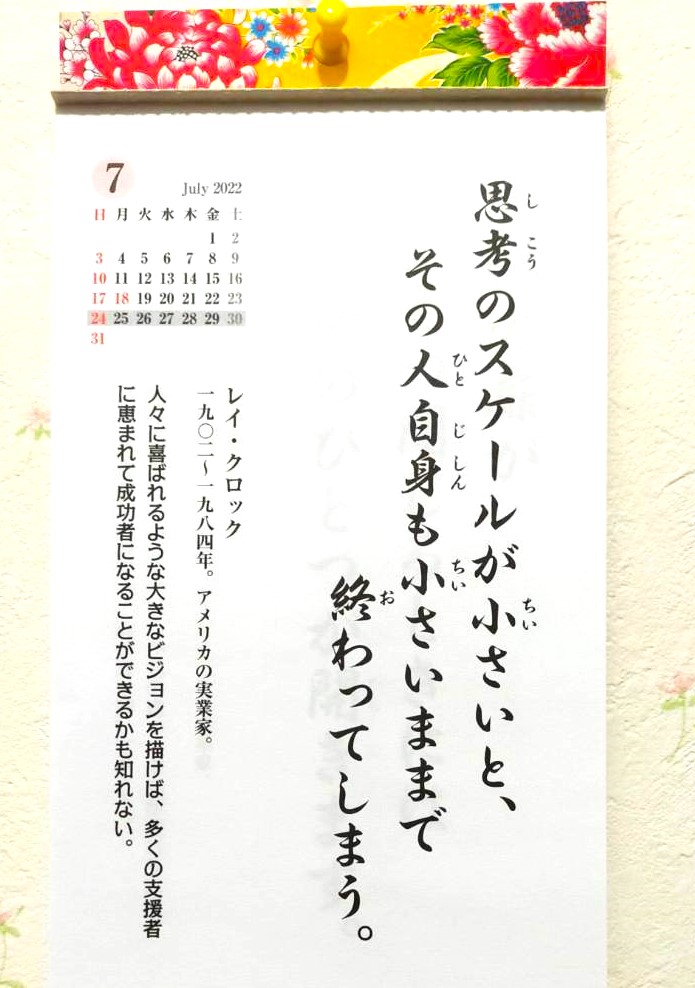 思考のスケールが小さいと、
その人自身も小さいままで
終わってしまう。
しこう
ちい
ひと
じしん
ちい
お
レイ・クロック
一九〇二〜一九八四年。アメリカの実業家。
人々に喜ばれるような大きなビジョンを描けば、多くの支援者
に恵まれて成功者になることができるかも知れない。
7
July 2022
日 月 火 水 木 金 土
1 2
3 4 5 6 7 8 9
10 11 12 13 14 15 16
17 18 19 20 21 22 23
24 25 26 27 28 29 30
31